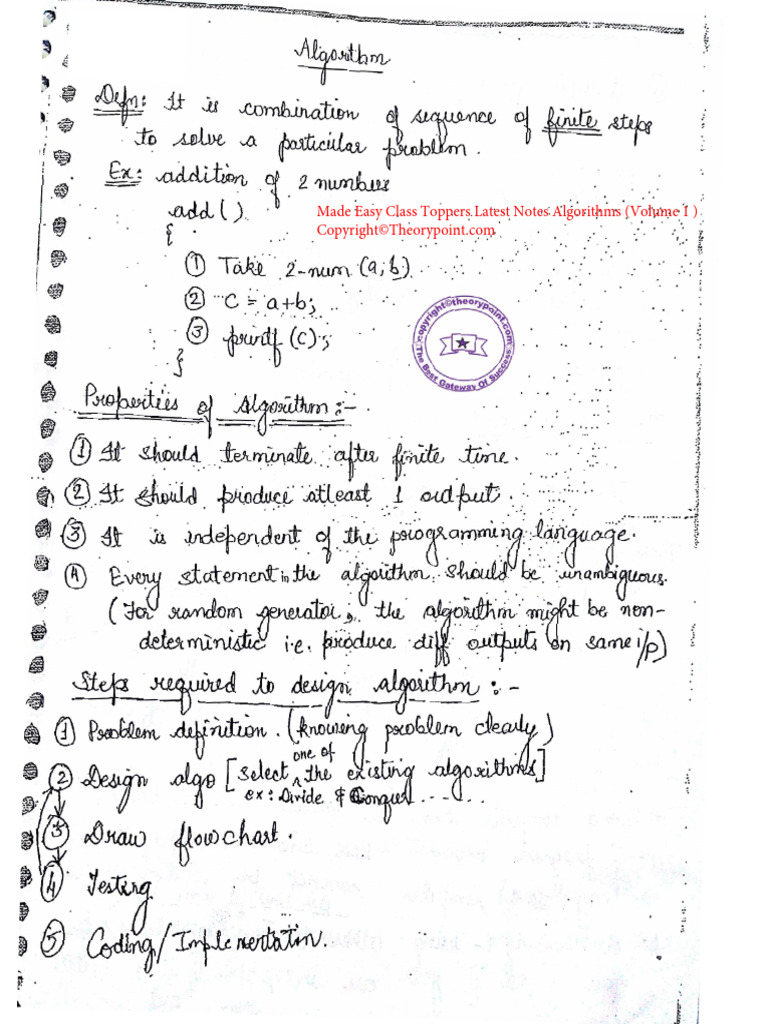 Algorithm
Defn: It is combination of sequence of finite steps
to solve a particular problem.
Ex: addition of 2 numbers
add()
Made Easy Class Toppers Latest Notes Algorithms (Volume I )
Copyright©Theorypoint.com
{
① Take 2-num (a,b)
② C = a+b;
③ printf (c);
}
copyright©theorypoint.com
The Best Gateway Of Success
Properties of Algorithm:-
① It should terminate after finite time.
② It should produce atleast 1 output.
③ It is independent of the programming language.
④ Every statement in the algorithm should be unambiguous.
(For random generator, the algorithm might be non-
deterministic i.e. produce diff outputs on same i/p)
Steps required to design algorithm:-
① Problem definition. (knowing problem clearly)
② Design algo [select one of the existing algorithms]
ex: Divide & Conquer ......
③ Draw flowchart.
④ Testing
⑤ Coding/Implementation.